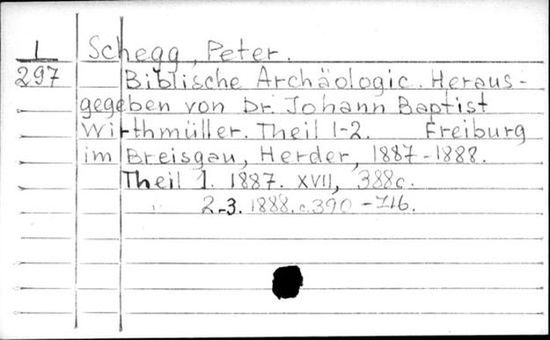 1 Schegg, Peter.
297 Biblische Archäologic. Heraus-
gegeben von Dr. Johann Baptist
Wirthmüller. Theil 1-2. Freiburg
im Breisgau, Herder, 1887-1888.
Theil 1. 1887. XVII, 388c.
" 2-3. 1888. c.390-716.